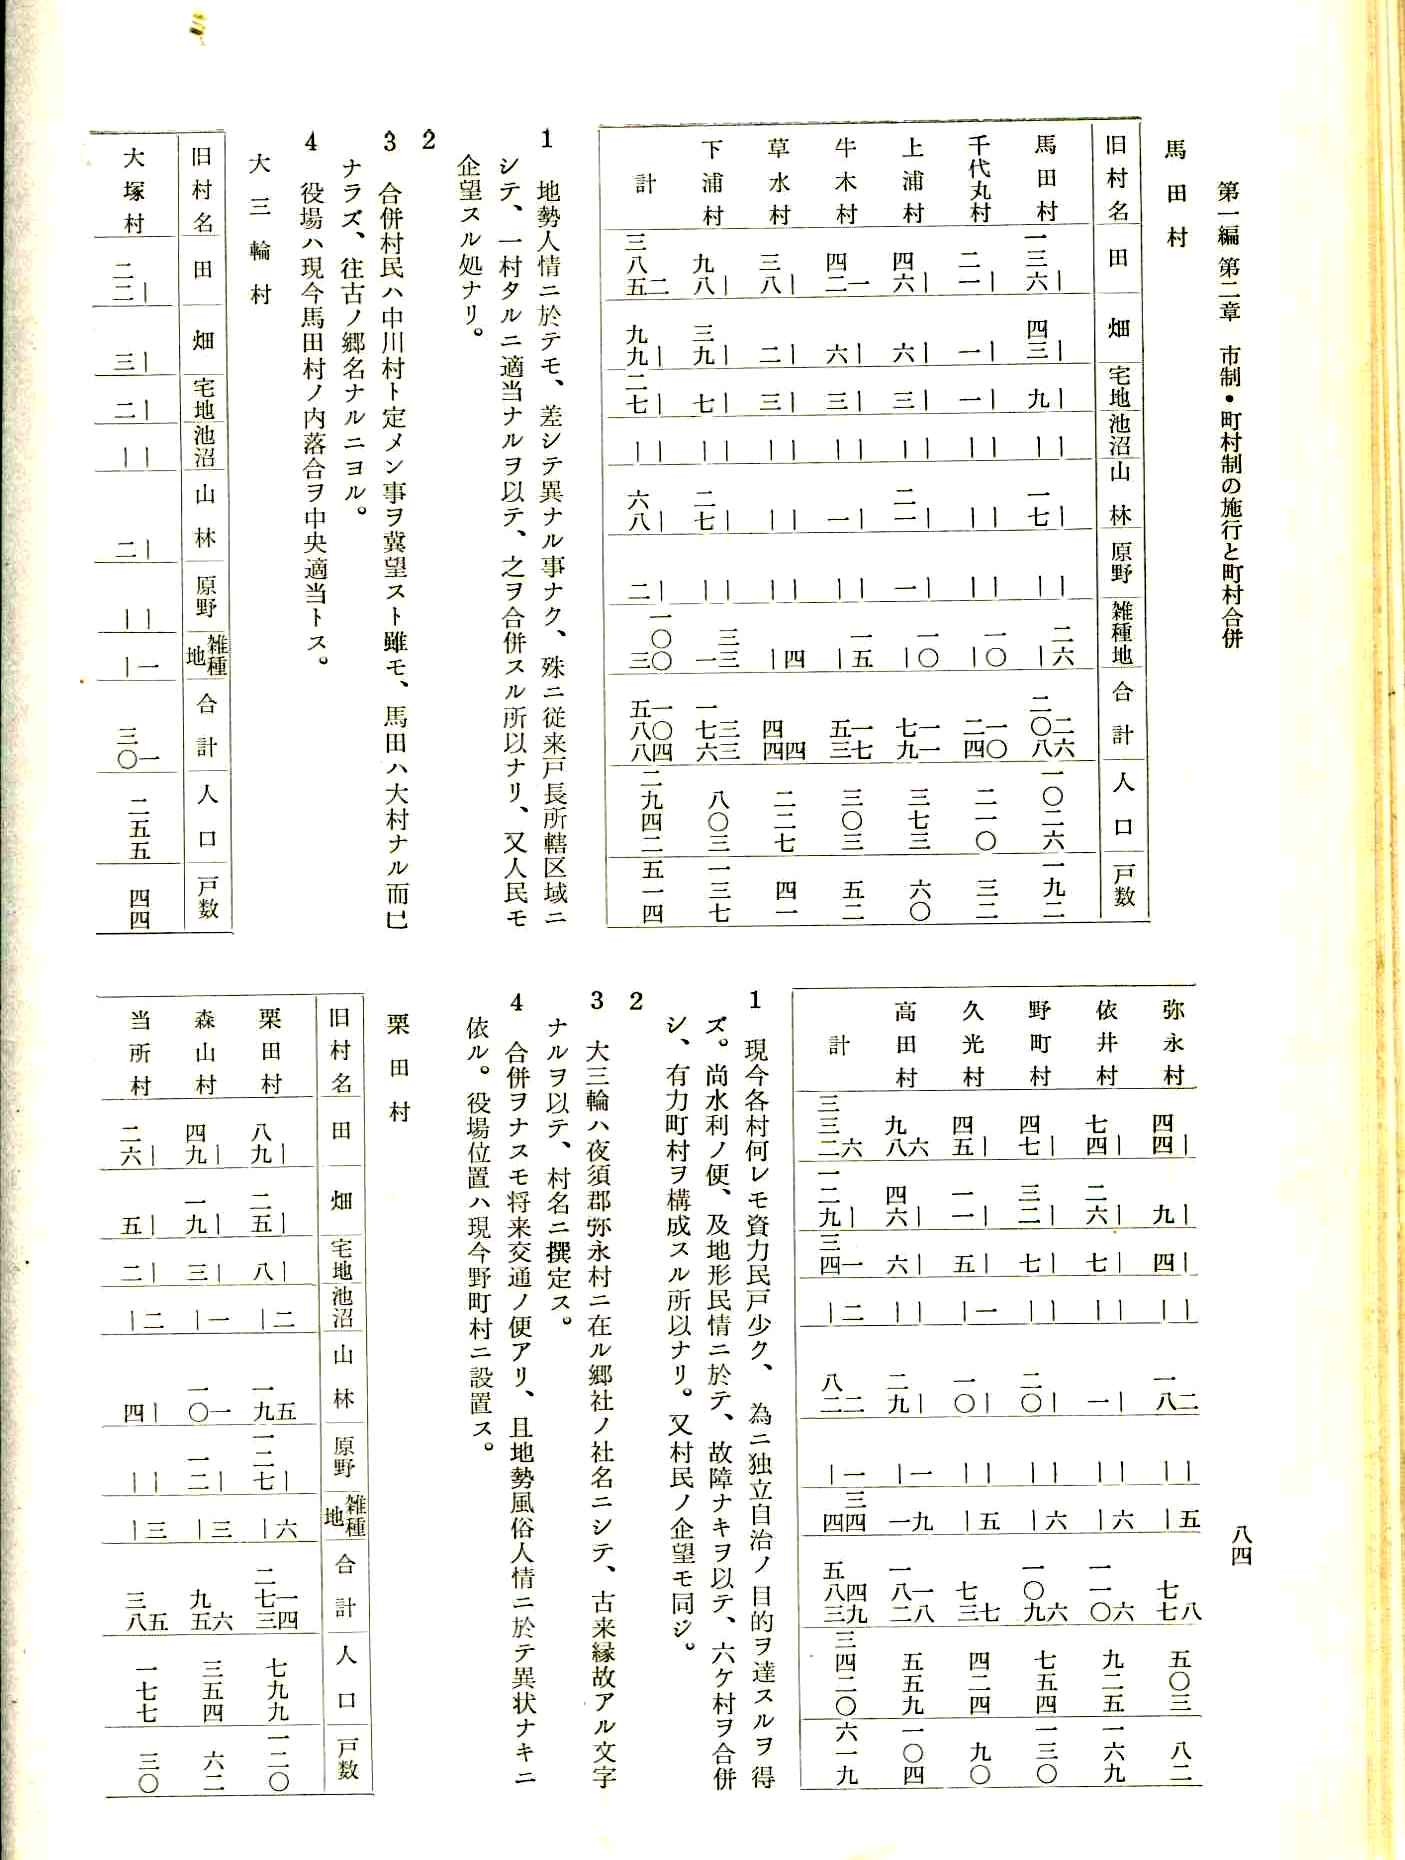 第一編 第二章 市制・町村制の施行と町村合併
八四
馬田村
旧村名 田 畑 宅地 池沼 山林 原野 雑種地 合計 人口 戸数
馬田村 ｜ 一三六 ｜ 四三 ｜ 九 ｜ ｜ ｜ 一七 ｜ ｜ 二六 ｜ 二六 二〇八 一〇二六 一九二
千代丸村 ｜ 二一 ｜ 一 ｜ 一 ｜ ｜ ｜ ｜ ｜ ｜ 一〇 ｜ 一〇 二四 二一〇 三二
上浦村 ｜ 四六 ｜ 六 ｜ 三 ｜ ｜ ｜ 二一 ｜ 一 一〇 ｜ 一一 七九 三七三 六〇
牛木村 一 四二 ｜ 六 ｜ 三 ｜ ｜ ｜ 一 ｜ ｜ 一五 ｜ 一七 五三 三〇三 五二
草水村 ｜ 三八 ｜ 二 ｜ 三 ｜ ｜ ｜ ｜ ｜ ｜ 四 ｜ 四 四四 二二七 四一
下浦村 ｜ 九八 ｜ 三九 ｜ 七 ｜ ｜ ｜ 二七 ｜ ｜ 三三 一 三三 一七六 八〇三 一三七
計 二 三八五 ｜ 九九 ｜ 二七 ｜ ｜ ｜ 六八 ｜ 二 一〇〇 三 一〇四 五八八 二九四二 五一四
1 地勢人情ニ於テモ、差シテ異ナル事ナク、殊ニ従来戸長所轄区域ニ
シテ、一村タルニ適当ナルヲ以テ、之ヲ合併スル所以ナリ、又人民モ
企望スル処ナリ。
2
3 合併村民ハ中川村ト定メン事ヲ冀望スト雖モ、馬田ハ大村ナル而已
ナラズ、往古ノ郷名ナルニヨル。
4 役場ハ現今馬田村ノ内落合ヲ中央適当トス。
大三輪村
旧村名 田 畑 宅地 池沼 山林 原野 雑種地 合計 人口 戸数
大塚村 ｜ 二二 ｜ 三 ｜ 二 ｜ ｜ ｜ 二 ｜ ｜ 一 ｜ 一 三〇 二五五 四四
弥永村 ｜ 四四 ｜ 九 ｜ 四 ｜ ｜ 二 一八 ｜ ｜ 五 ｜ 八 七七 五〇三 八二
依井村 ｜ 七四 ｜ 二六 ｜ 七 ｜ ｜ ｜ 一 ｜ ｜ 六 ｜ 六 一一〇 九二五 一六九
野町村 ｜ 四七 ｜ 三二 ｜ 七 ｜ ｜ ｜ 二〇 ｜ ｜ 六 ｜ 六 一〇九 七五四 一三〇
久光村 ｜ 四五 ｜ 一一 ｜ 五 一 ｜ ｜ 一〇 ｜ ｜ 五 ｜ 七 七三 四二四 九〇
高田村 六 九八 ｜ 四六 ｜ 六 ｜ ｜ ｜ 二九 一 ｜ 九 一 一八 一八二 五五九 一〇四
計 六 三三二 ｜ 一二九 一 三四 二 ｜ 二 八二 一 ｜ 三四 四 四九 五八三 三四二〇 六一九
1 現今各村何レモ資力民戸少ク、為ニ独立自治ノ目的ヲ達スルヲ得
ズ。尚水利ノ便、及地形民情ニ於テ、故障ナキヲ以テ、六ケ村ヲ合併
シ、有力町村ヲ構成スル所以ナリ。又村民ノ企望モ同ジ。
2
3 大三輪ハ夜須郡弥永村ニ在ル郷社ノ社名ニシテ、古来縁故アル文字
ナルヲ以テ、村名ニ撰定ス。
4 合併ヲナスモ将来交通ノ便アリ、且地勢風俗人情ニ於テ異状ナキニ
依ル。役場位置ハ現今野町村ニ設置ス。
栗田村
旧村名 田 畑 宅地 池沼 山林 原野 雑種地 合計 人口 戸数
栗田村 ｜ 八九 ｜ 二五 ｜ 八 二 ｜ 五 一九 ｜ 一二七 六 ｜ 一四 二七三 七九九 一二〇
森山村 ｜ 四九 ｜ 一九 ｜ 三 一 ｜ 一 一〇 ｜ 一二 三 ｜ 六 九五 三五四 六二
当所村 ｜ 二六 ｜ 五 ｜ 二 二 ｜ ｜ 四 ｜ ｜ 三 ｜ 五 三八 一七七 三〇